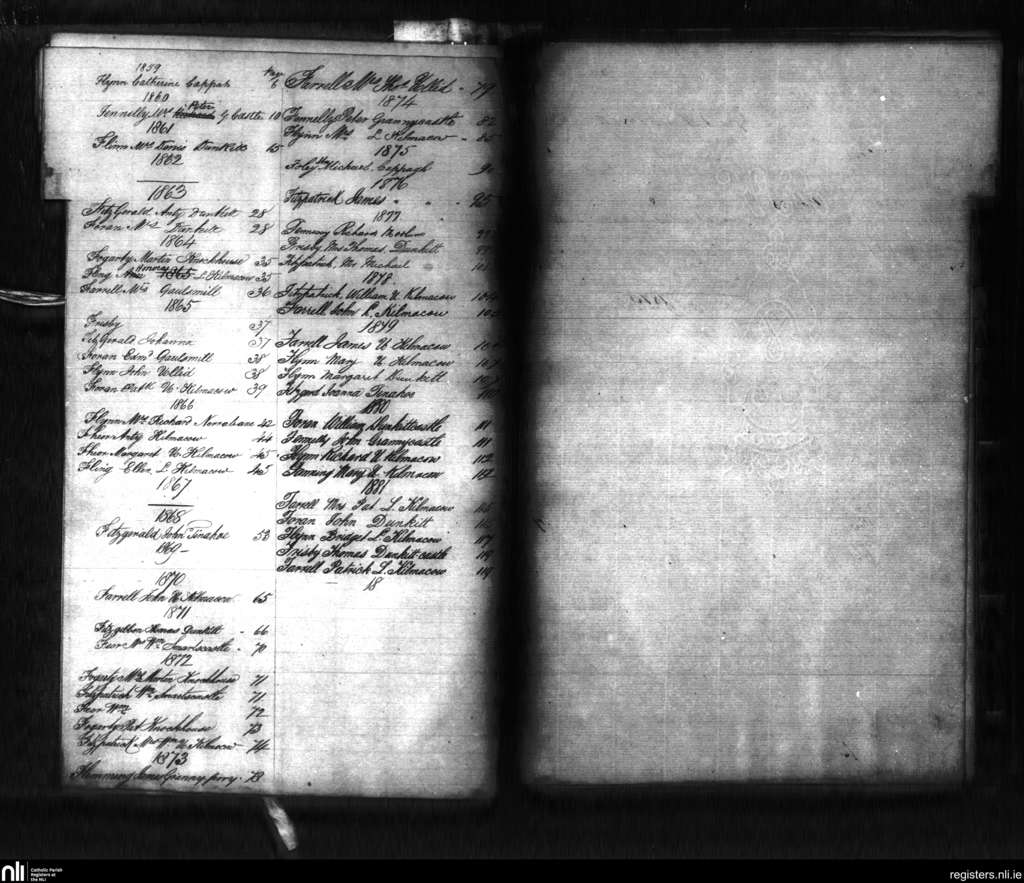 1859 Page
Flynn Catherine Cappah 6
1860
Fennelly Mr Peter G Castle 10
1861
Flinn Mrs Denis Dunkitt 15
1862
1863
FitzGerald Anty Dunkitt 28
Foran Mrs Dunkitt 28
1864
Fogarty Martin Knockhouse 35
Fling Honora L. Kilmacow 35
Farrell Mrs Gaulsmill 36
1865
Frisby 37
FitzGerald Johanna 37
Foran Edmd Gaulsmill 38
Flynn John Ullid 38
Foran Patk U. Kilmacow 39
1866
Flynn Mrs Richard 42
Anty Kilmacow 44
Margaret U. Kilmacow 45
Fling Ellen L. Kilmacow 45
1867
1868
Fitzgerald John Tinahoe 53
1869
1870
Farrell John U. Kilmacow 65
1871
Fitzgibbon Thomas Dunkitt - 66
Mrs Wm Smartscastle - 70
1872
Fogerty Mrs Martin Knockhouse 71
Fitzpatrick Wm Smartscastle 71
Wm 72
Fogarty Pat Knockhouse 73
Fitzpatrick Mrs Wm U. Kilmacow 74
1873
Flemming James Granny ferry - 78
Farrell Mrs Thos Ullid - 79
1874
Fennelly Peter Grannycastle 82
Flynn Mrs L. Kilmacow - 85
1875
Foley Michael Cappagh
1876
Fitzpatrick James " " - 95
1877
Richard
Frisby Mrs Thomas Dunkitt
Fitzpatrick Mr Michael
1878
Fitzpatrick William U Kilmacow 104
Farrell John L. Kilmacow
1879
Farrell James U Kilmacow
Flynn Mary U. Kilmacow 107
Flynn Margaret Dunkitt 107
Joanna Tinahoe
1880
Foran William Dunkittcastle 111
Fennelly John Grannycastle 111
Flynn Richard U Kilmacow 112
Mary U. Kilmacow 112
1881
Farrell Mrs Pat L. Kilmacow
Foran John Dunkitt
Flynn Bridget L. Kilmacow 117
Frisby Thomas Dunkitt-castle 119
Farrell Patrick L. Kilmacow 119
18
nli Catholic Parish Registers at the NLI
registers.nli.ie